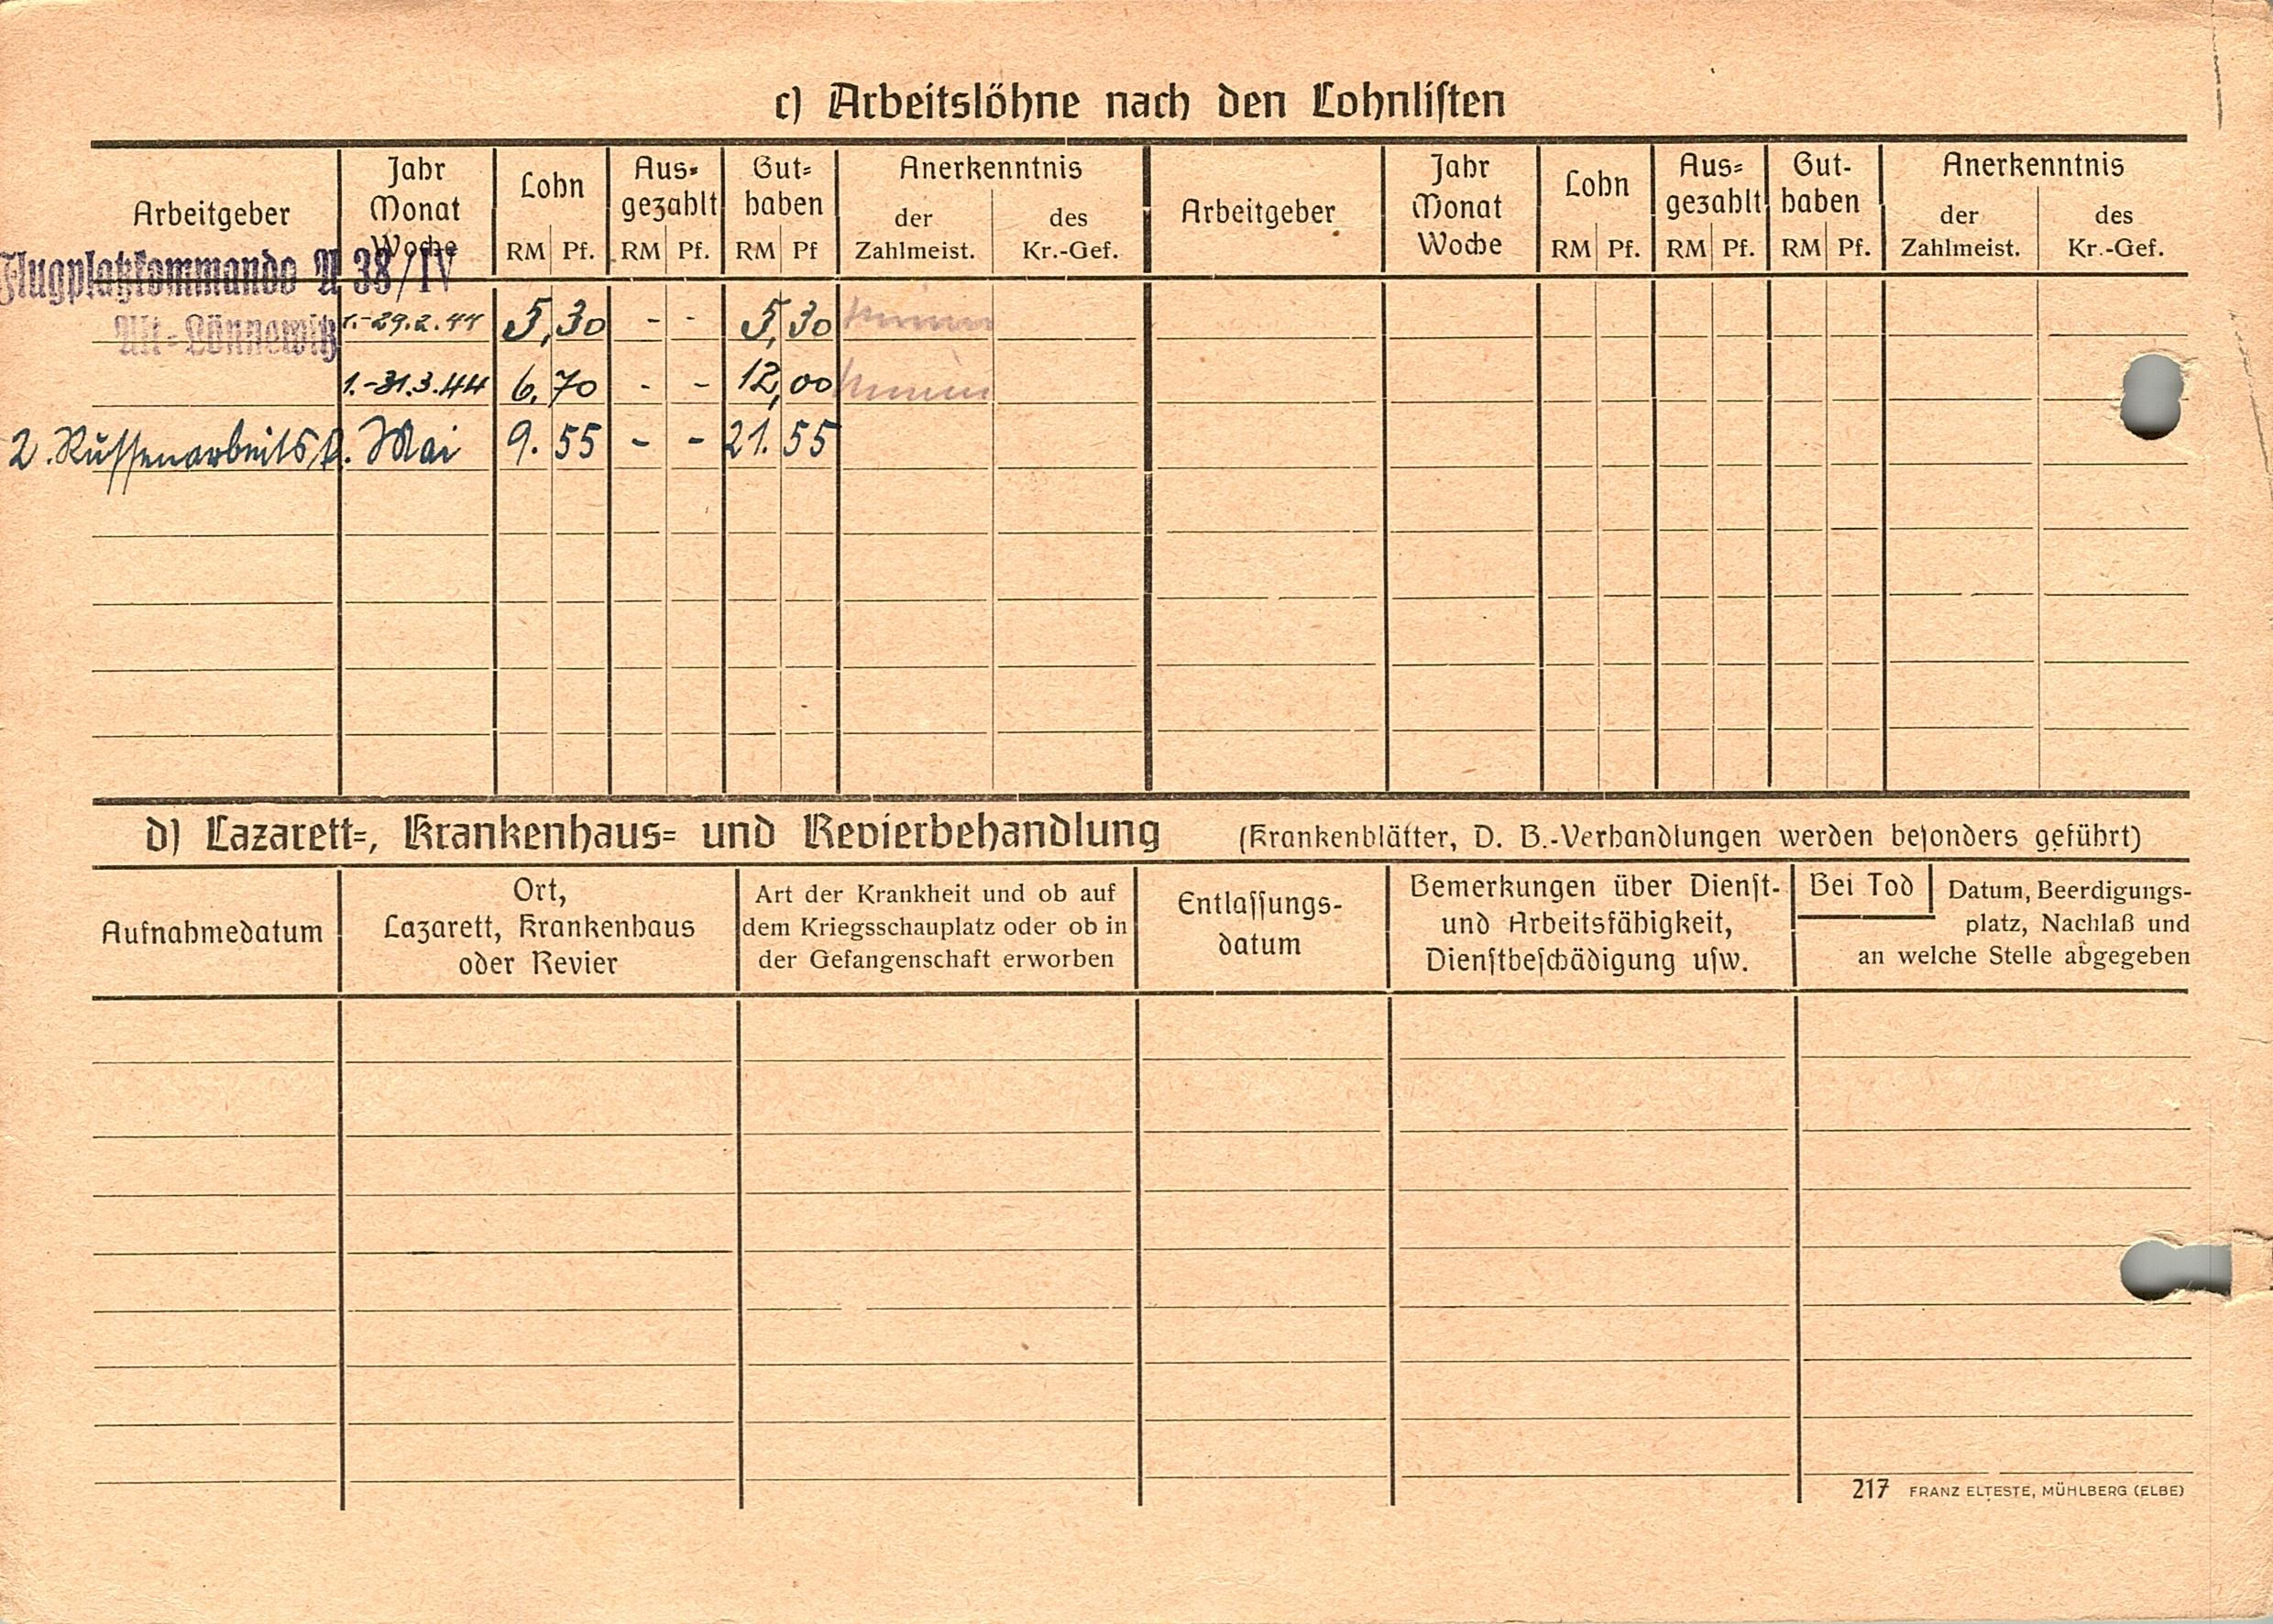 c) Arbeitslöhne nach den Lohnlisten
Arbeitgeber Jahr Monat Woche Lohn RM Pf. Ausgezahlt RM Pf. Guthaben RM Pf Anerkenntnis der Zahlmeist. des Kr.-Gef. Arbeitgeber Jahr Monat Woche Lohn RM Pf. Ausgezahlt RM Pf. Guthaben RM Pf. Anerkenntnis der Zahlmeist. des Kr.-Gef.
Flugplatzkommando A 38/IV
Alt-Lönnewitz 1.-29.2.44 5,30 - - 5,30
1.-31.3.44 6,70 - - 12,00
2. Russenarbeits Mai 9.55 - - 21.55
d) Lazarett-, Krankenhaus- und Revierbehandlung (Krankenblätter, D. B.-Verhandlungen werden besonders geführt)
Aufnahmedatum
Ort,
Lazarett, Krankenhaus
oder Revier
Art der Krankheit und ob auf
dem Kriegsschauplatz oder ob in
der Gefangenschaft erworben
Entlassungs-
datum
Bemerkungen über Dienst-
und Arbeitsfähigkeit,
Dienstbeschädigung usw.
Bei Tod Datum, Beerdigungs-
platz, Nachlaß und
an welche Stelle abgegeben
217 FRANZ ELTESTE, MÜHLBERG (ELBE)